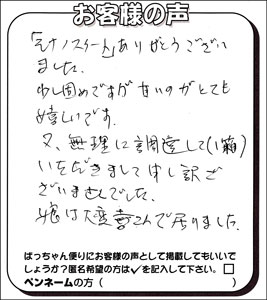 お客様の声
「モナノスイート」ありがとうござい
ました。
少し固めですが甘いのがとても
嬉しいです。
又、無理に調達して(1箱)
いただきまして申し訳ござ
ざいませんでした。
娘は大変喜んで居りました。
ばっちゃん便りにお客様の声として掲載してもいいで
しょうか?匿名希望の方は✓を記入して下さい。□
ペンネームの方( )